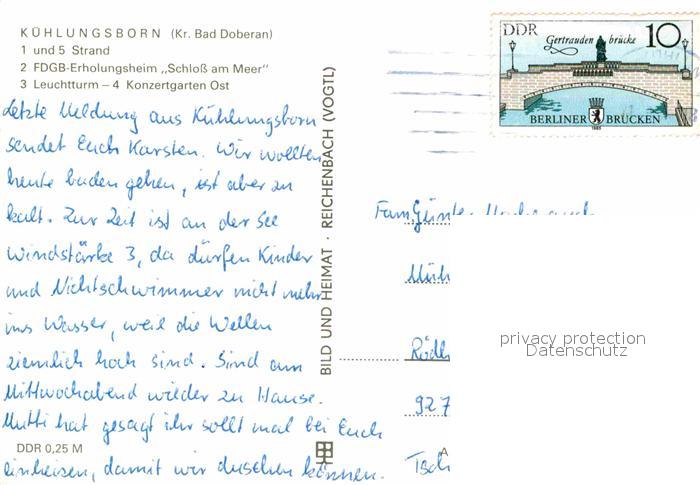 KÜHLUNGSBORN (Kr. Bad Doberan)
1 und 5 Strand
2 FDGB-Erholungsheim „Schloß am Meer"
3 Leuchtturm – 4 Konzertgarten Ost
Letzte Meldung aus Kühlungsborn
sendet Euch Karsten. Wir wollten
heute baden gehen, ist aber zu
kalt. Zur Zeit ist an der See
Windstärke 3, da dürfen Kinder
und Nichtschwimmer nicht mehr
ins Wasser, weil die Wellen
ziemlich hoch sind. Sind am
Mittwochabend wieder zu Hause.
Mutti hat gesagt ihr sollt mal bei Euch
einheizen, damit wir duschen können.
DDR 0,25 M
BILD UND HEIMAT · REICHENBACH (VOGTL)
DDR
Gertraudenbrücke
10
BERLINER BRÜCKEN
1985
Fam. Günter
Müh
Rödl
927
Tsch
A
privacy protection
Datenschutz